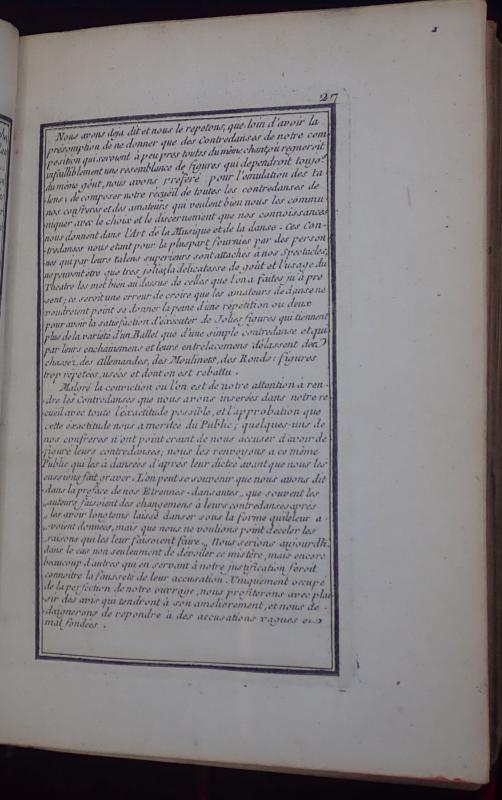 27
Nous avons deja dit et nous le repetons, que loin d'avoir la
présomption de ne donner que des Contredanses de notre com
position qui seroient à peu pres toutes du même chant, où regneroit
infailliblement une resemblance de figures qui dependront toujo.rs
du même goût, nous avons preferé pour l'émulation des ta-
lens, de composer notre recüeil de toutes les contredanses de
nos confreres et des amateurs qui veulent bien nous les commu-
niquer avec le choix et le discernement que nos connoissances
nous donnent dans l'Art de la Musique et de la danse. Ces Con-
tredanses nous etant pour la pluspart fournies par des person-
nes qui par leurs talens superieurs sont attachés à nos Spectacles,
ne peuvent etre que tres jolies; la delicatesse de goût et l'usage du
Theatre les met bien au dessus de celles que l'on a faites ju'à pré
sent; ce seroit une erreur de croire que les amateurs de danse ne
voudroient point se donner la peine d'une repetition ou deux
pour avoir la satisfaction d'éxécuter de Jolies figures qui tiennent
plus de la varieté d'un Ballet que d'une simple contredanse et qui
par leurs enchainemens et leurs entrelacemens délassent des
chassez, des Allemandes, des Moulinets, des Ronds: figures
trop repetées, usées et dont on est rebattu.
Malgré la conviction ou l'on est de notre attention à ren-
dre les Contredanses que nous avons inserées dans notre re
cueil avec toute l'éxactitude possible, et l'approbation que
cette éxactitude nous a meritée du Public; quelques-uns de
nos confreres n'ont point craint de nous accuser d'avoir de-
figuré leurs contredanses; nous les renvoyons a ce même
Public qui les à dansées d'après leur dictée avant que nous les
eussions fait graver. L'on peut se souvenir que nous avons dit
dans la préface de nos Etrennes-dansantes „ que souvent les
„ auteurs faisoient des changemens à leurs contredanses après
„ les avoir longtems laissé danser sous la forme qu'ils leur a-
„ voient données, mais que nous ne voulions point deceler les
„ raisons qui les leur faisoient faire. „ Nous serions aujourdh.
dans le cas non seulement de dévoiler ce mistére, mais encore
beaucoup d'autres qui en servant à notre justification feroit
connoitre la fausseté de leur accusation. Uniquement occupé
de la perfection de notre ouvrage, nous profiterons avec plai
sir des avis qui tendront à son amelierement, et nous de-
daignerons de repondre à des accusations vagues et
mal fondées.